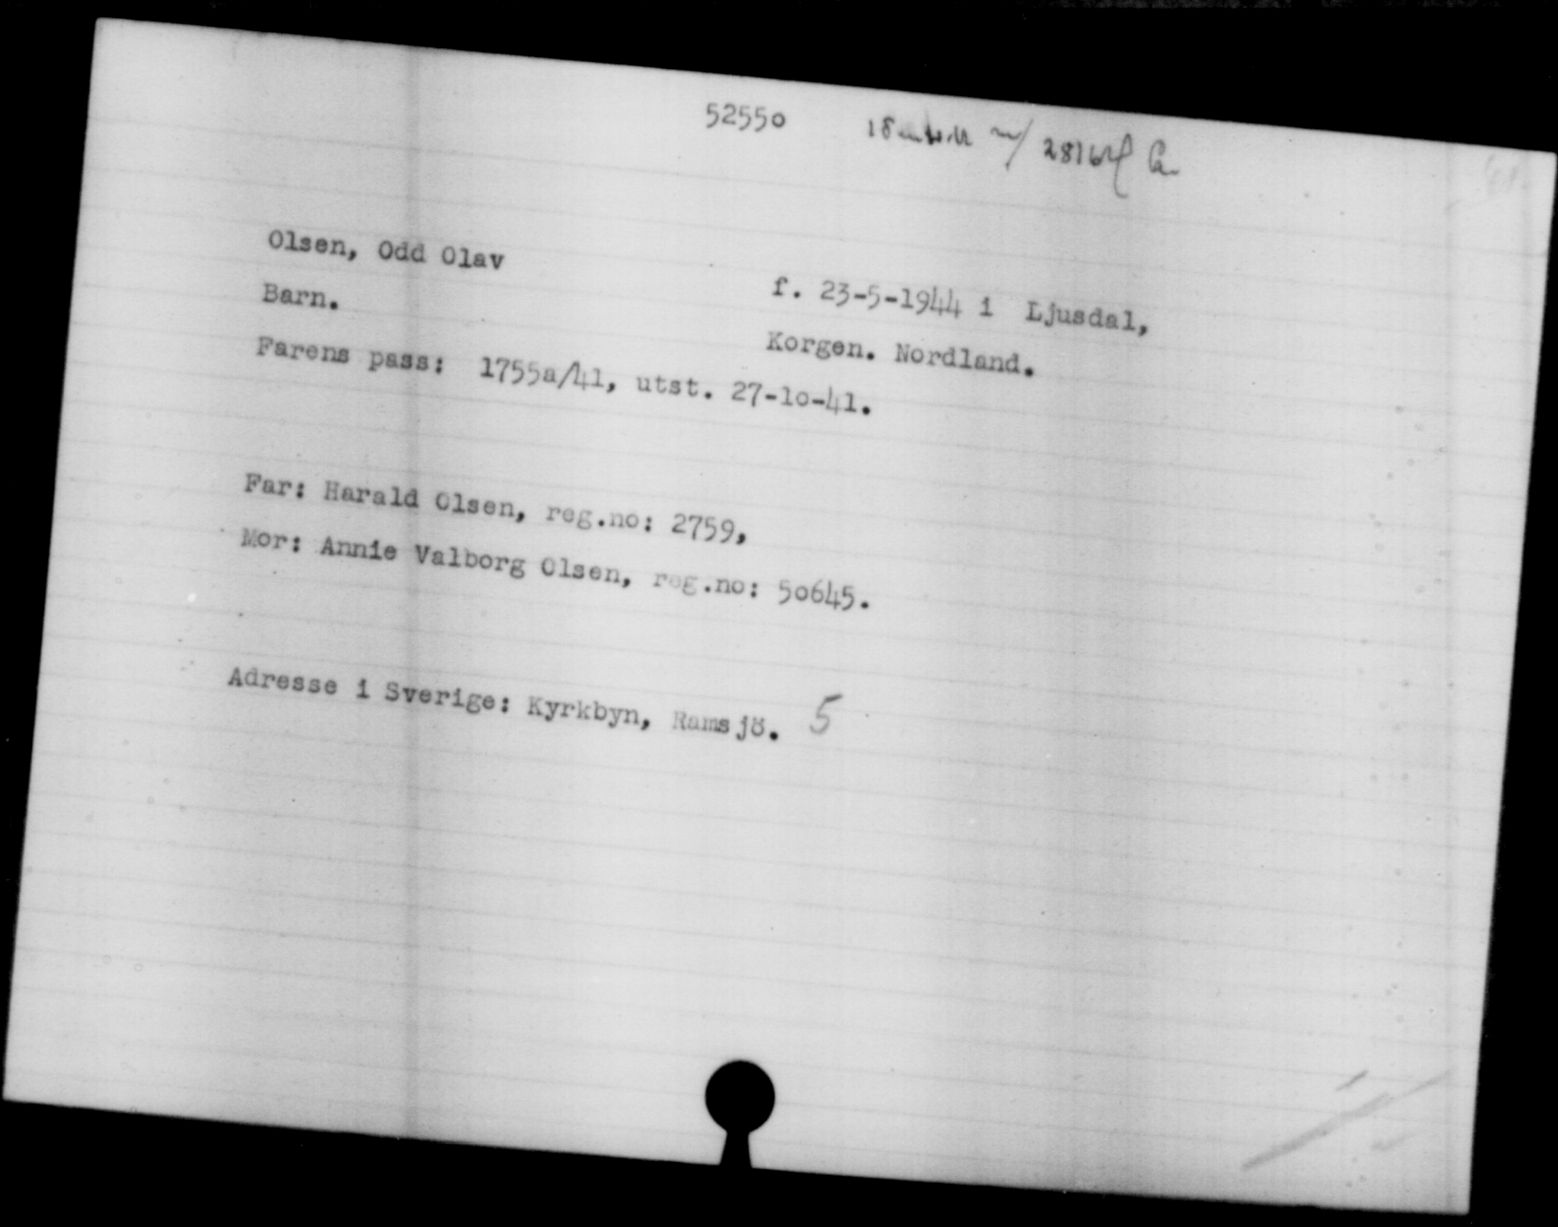 52550
Olsen, Odd Olav
f. 23-5-1944 i Ljusdal,
Barn.
Korgen. Nordland.
Farens pass: 1755a/41, utst. 27-10-41.
Far: Harald Olsen, reg.no: 2759,
Mor: Annie Valborg Olsen, reg.no: 50645.
Adresse i Sverige: Kyrkbyn, Ramsjö. 5